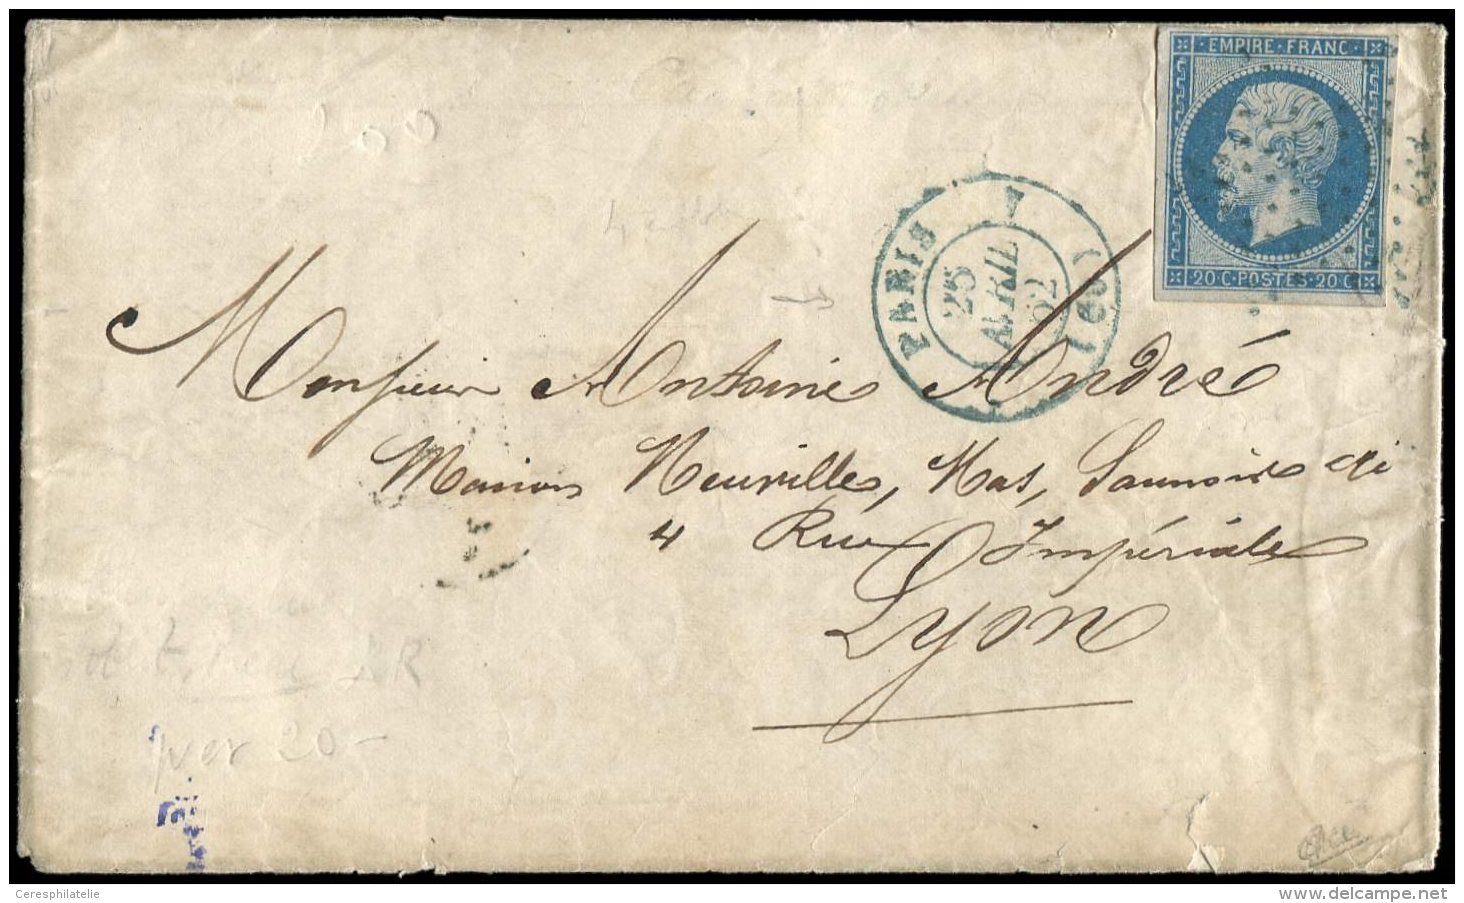 EMPIRE · FRANC ·
20 C · POSTES · 20 C
PARIS
(60)
25
AVRIL
62
Monsieur Antoine André
Maison Neuville, Mas, Saunois &
4 Rue Impériale
Lyon
pver 20-
Ceresphilatelie
www.delcampe.net